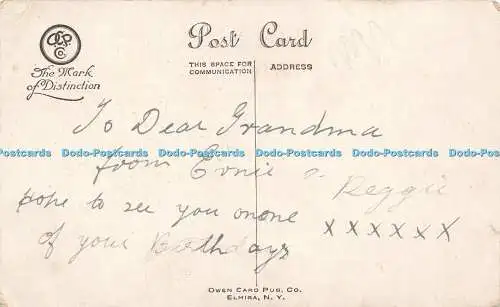 OCP
Co.
The Mark
of Distinction
Post Card
THIS SPACE FOR
COMMUNICATION
ADDRESS
To Dear Grandma
Postcards Dodo-Postcards Dodo-Postcards Dodo-Postcards Dodo-Postcards Dodo
from Ernie &
Reggie
hope to see you on one
of your Birthdays
xxxxxx
OWEN CARD PUB. CO.
ELMIRA, N. Y.